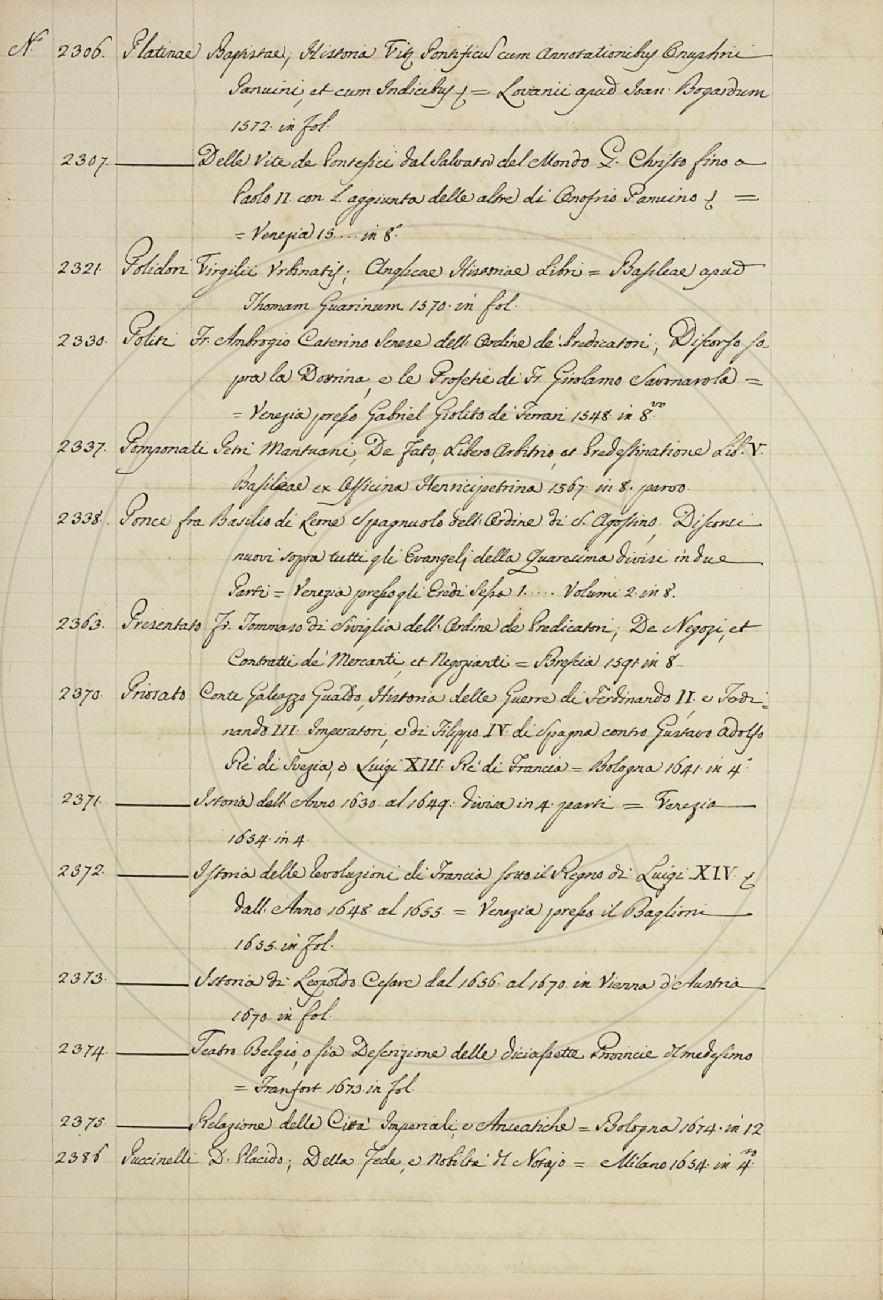 N.º 2306. Platinae Baptistae; Historia Vitę Pontificũ cum Annotationibus Onuphrii
Panvini, et cum Indicibus = Lovanii apud Ioan: Bogardum
1572. in fol.
2307. ——— Delle Vite de Pontefici dal Salvator del Mondo G. Christo fino a
Paolo II. con l'aggiunta delle altre di Onofrio Panvino =
= Venezia 15.... in 8.º
2321. Polidori Virgilii Urbinatis; Anglicae Historiae Libri = Basileae apud
Thomam Guarinum 1570. in fol.
2330. Politi Fr. Ambrogio Caterino Senese dell'Ordine de' Predicatori; Discorso so
pra la Dottrina, e le Profetie di Fr. Girolamo Savonarola =
= Venezia presso Gabriel Giolito de' Ferrari 1548. in 8.vo
2337. Pomponati Petri Mantuani, De Fato, Libero Arbitrio, et Predestinatione Lib. V.
Basileae ex Officina Henricipetrina 1567. in 8. parvo.
2338. Ponce fra Basilio di Leone Spagnuolo dell'Ordine di S. Agostino; Discorsi
nuovi sopra tutti gli Evangelj della Quaresima divisi in due
Parti = Venezia presso gli Eredi Sessa 1..... Volumi 2. in 8.
2363. Presentato Fr. Tommaso di Siviglia dell'Ordine de Predicatori; De Negozj, et
Contratti de' Mercanti, et Negozianti = Brescia 1591. in 8.
2370. Priorato Conte Galeazzo Gualdo, Historia delle Guerre di Ferdinando II. e Ferdi=
nando III. Imperatori, e di Filippo IV. di Spagna contro Gustavo Adolfo
Rè di Svezia, e Luigi XIII. Rè di Francia = Bologna 1641. in 4.º
2371. ——— Istoria dell'Anno 1630. al 1649. divisa in 4. parti = Venezia
1654. in 4.
2372. ——— Istoria delle Revoluzioni di Francia sotto il Regno di Luigi XIV.
dall'Anno 1648. al 1655. = Venezia presso il Baglioni
1655. in fol.
2373. ——— Istoria di Leopoldo Cesare dal 1656. al 1670. in Vienna d'Austria
1670. in fol.
2374. ——— Teatro Belgio, o sia Descrizione delle diciassette Provincie del medesimo
= Franfort 1673. in fol.
2375. ——— Relazione delle Città Imperiali, e Anseatiche = Bologna 1674. in 12
2386 Puccinelli D. Placido; Della Fede, e Nobiltà del Notajo = Milano 1654. in 4.to